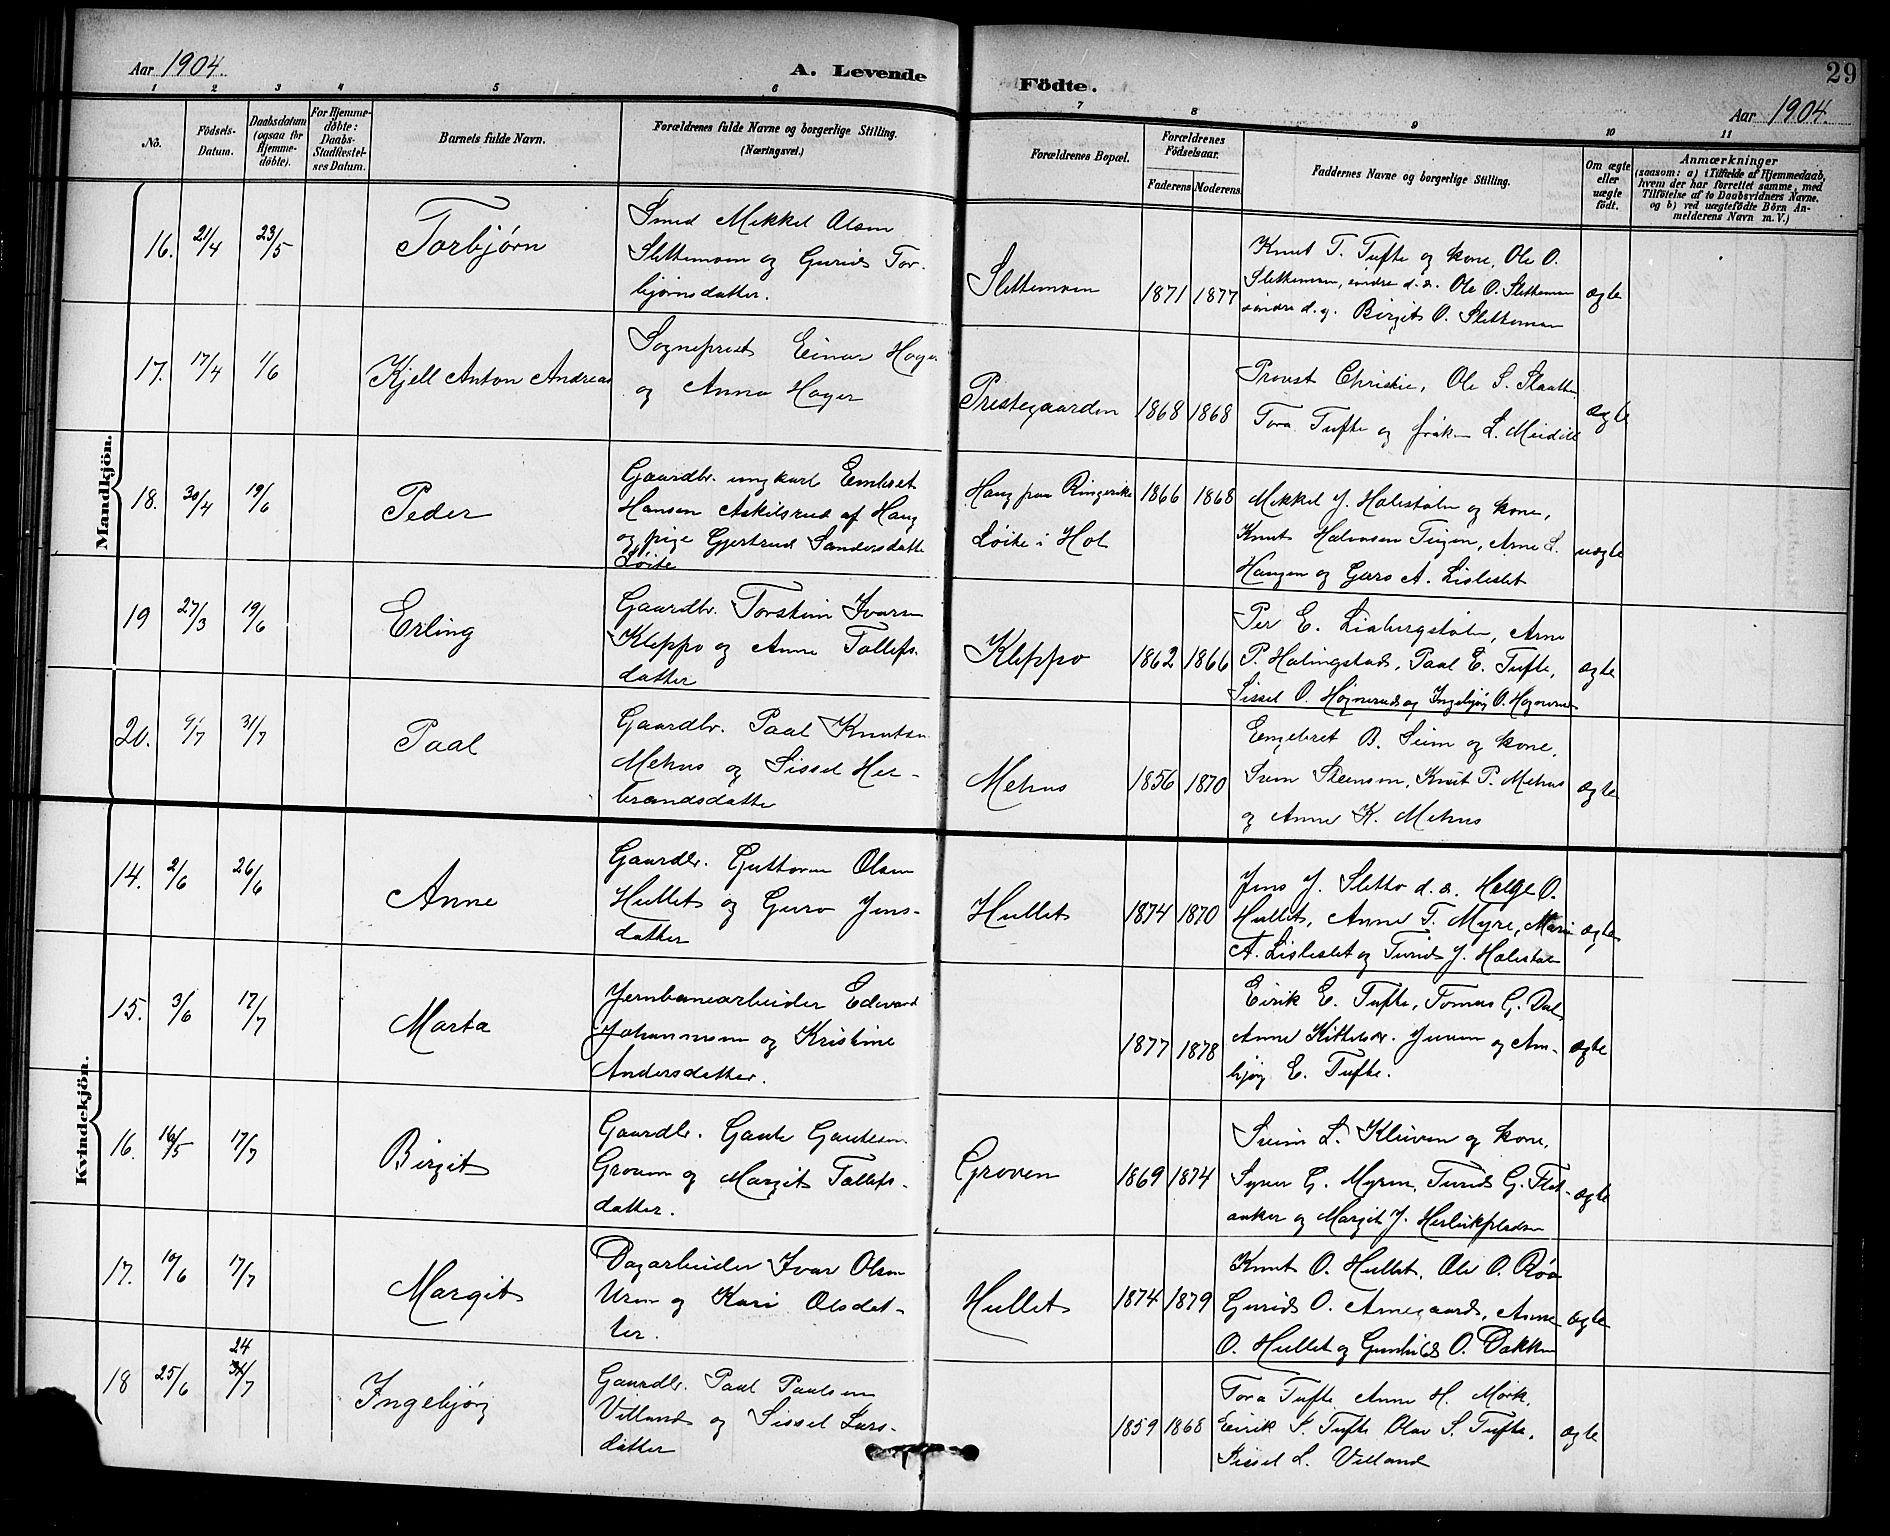 Aar 1904.
A. Levende
Födte.
29
Aar 1904.
1 2 3 4 5 6 7 8 9 10 11
No.
Födsels-Datum.
Daabsdatum (ogsaa for Hjemmedöbte).
For Hjemmedöbte: Daabs-Stadfæstelses Datum.
Barnets fulde Navn.
Forældrenes fulde Navne og borgerlige Stilling.
(Næringsvei.)
Forældrenes Bopæl.
Forældrenes Födselsaar.
Faderens Moderens
Faddernes Navne og borgerlige Stilling.
Om ægte eller uægte födt.
Anmærkninger
(saasom: a) i Tilfælde af Hjemmedaab,
hvem der har forrettet samme, med
Tilföielse af to Daabsvidners Navne,
og b) ved uægtefödte Börn Anmelderens Navn m. V.)
Mandkjön.
16. 21/4 23/5 Torbjørn
Smed Mikkel Olsen
Slettemoen og Gurid Tor-
bjørnsdatter.
Slettemoen 1871 1877
Knut T. Tufte og kone, Ole O.
Slettemoen, eindre d. æ. Ole O. Slettemoen
eindre d. y. Birgit O. Slettemoen
ægte
17. 17/4 1/6 Kjell Anton Andreas
Sogneprest Einar Hoyer
og Anna Hoyer
Prestegaarden 1868 1868
Provst Christie, Ole S. Slaatte
Tora Tufte og frøken L. Meidell
ægte
18. 30/4 19/6 Peder
Gaardbr. ungkarl Embret
Hansen Askilsrud af Haug
og pige Gjertrud Sandersdatter
Løite
Haug paa Ringerike
Løite i Hol
1866 1868
Mikkel J. Holestølen og kone,
Knut Halvorsen Tuigen, Arne L.
Haugen og Guro A. Lisleslet
uægte
19 27/3 19/6 Erling
Gaardbr. Torstein Ivarsen
Kleppo og Anne Tollefs-
datter
Kleppo 1862 1866
Per E. Liabergstølen, Arne
P. Halingstad, Paal E. Tufte,
Sissel O. Høgnerud og Ingebjør O. Høgnerud
ægte
20. 9/7 31/7 Paal
Gaardbr. Paal Knutsen
Mehus og Sissel Hel-
brandsdatter
Mehus 1856 1870
Engebret B. Seim og kone,
Svein Steinsen, Knut P. Mehus
og Anne K. Mehus
ægte
Kvindekjön.
14. 2/6 26/6 Anne
Gaardbr. Guttorm Olsen
Hullet og Guro Jens-
datter
Hullet 1874 1870
Jens J. Sletto d. æ. Helge O.
Hullet, Anne T. Myre, Mari
A. Lisleslet og Turid J. Holestøl
ægte
15. 3/6 17/7 Marta
Jernbanearbeider Edvard
Johannessen og Kristine
Andersdatter.
1877 1878
Eirik E. Tufte, Tomas G. Dal,
Anne Kittelsdr. Juven og Am-
bjørg E. Tufte.
ægte
16. 16/5 17/7 Birgit
Gaardbr. Gaute Gautesen
Groven og Margit Tollefs-
datter.
Groven 1869 1874
Svein L. Kleiven og kone,
Syver G. Myren, Turid G. Flet-
aaker og Margit J. Herleikpladsen
ægte
17. 10/6 17/7 Margit
Dagarbeider Ivar Olsen
Uren og Kari Olsdat-
ter.
Hullet 1874 1879
Knut O. Hullet, Ole O. Røo
Gurid O. Arnegaard, Anne
O. Hullet og Gunhild O. Bakken
ægte
18 25/6 24/7 Ingebjørg
Gaardbr. Paal Paalsen
Villand og Sissel Lars-
datter
1859 1868
Tora Tufte Anne H. Mørk,
Eirik S. Tufte Olav S. Tufte,
Sissel L. Villand
ægte